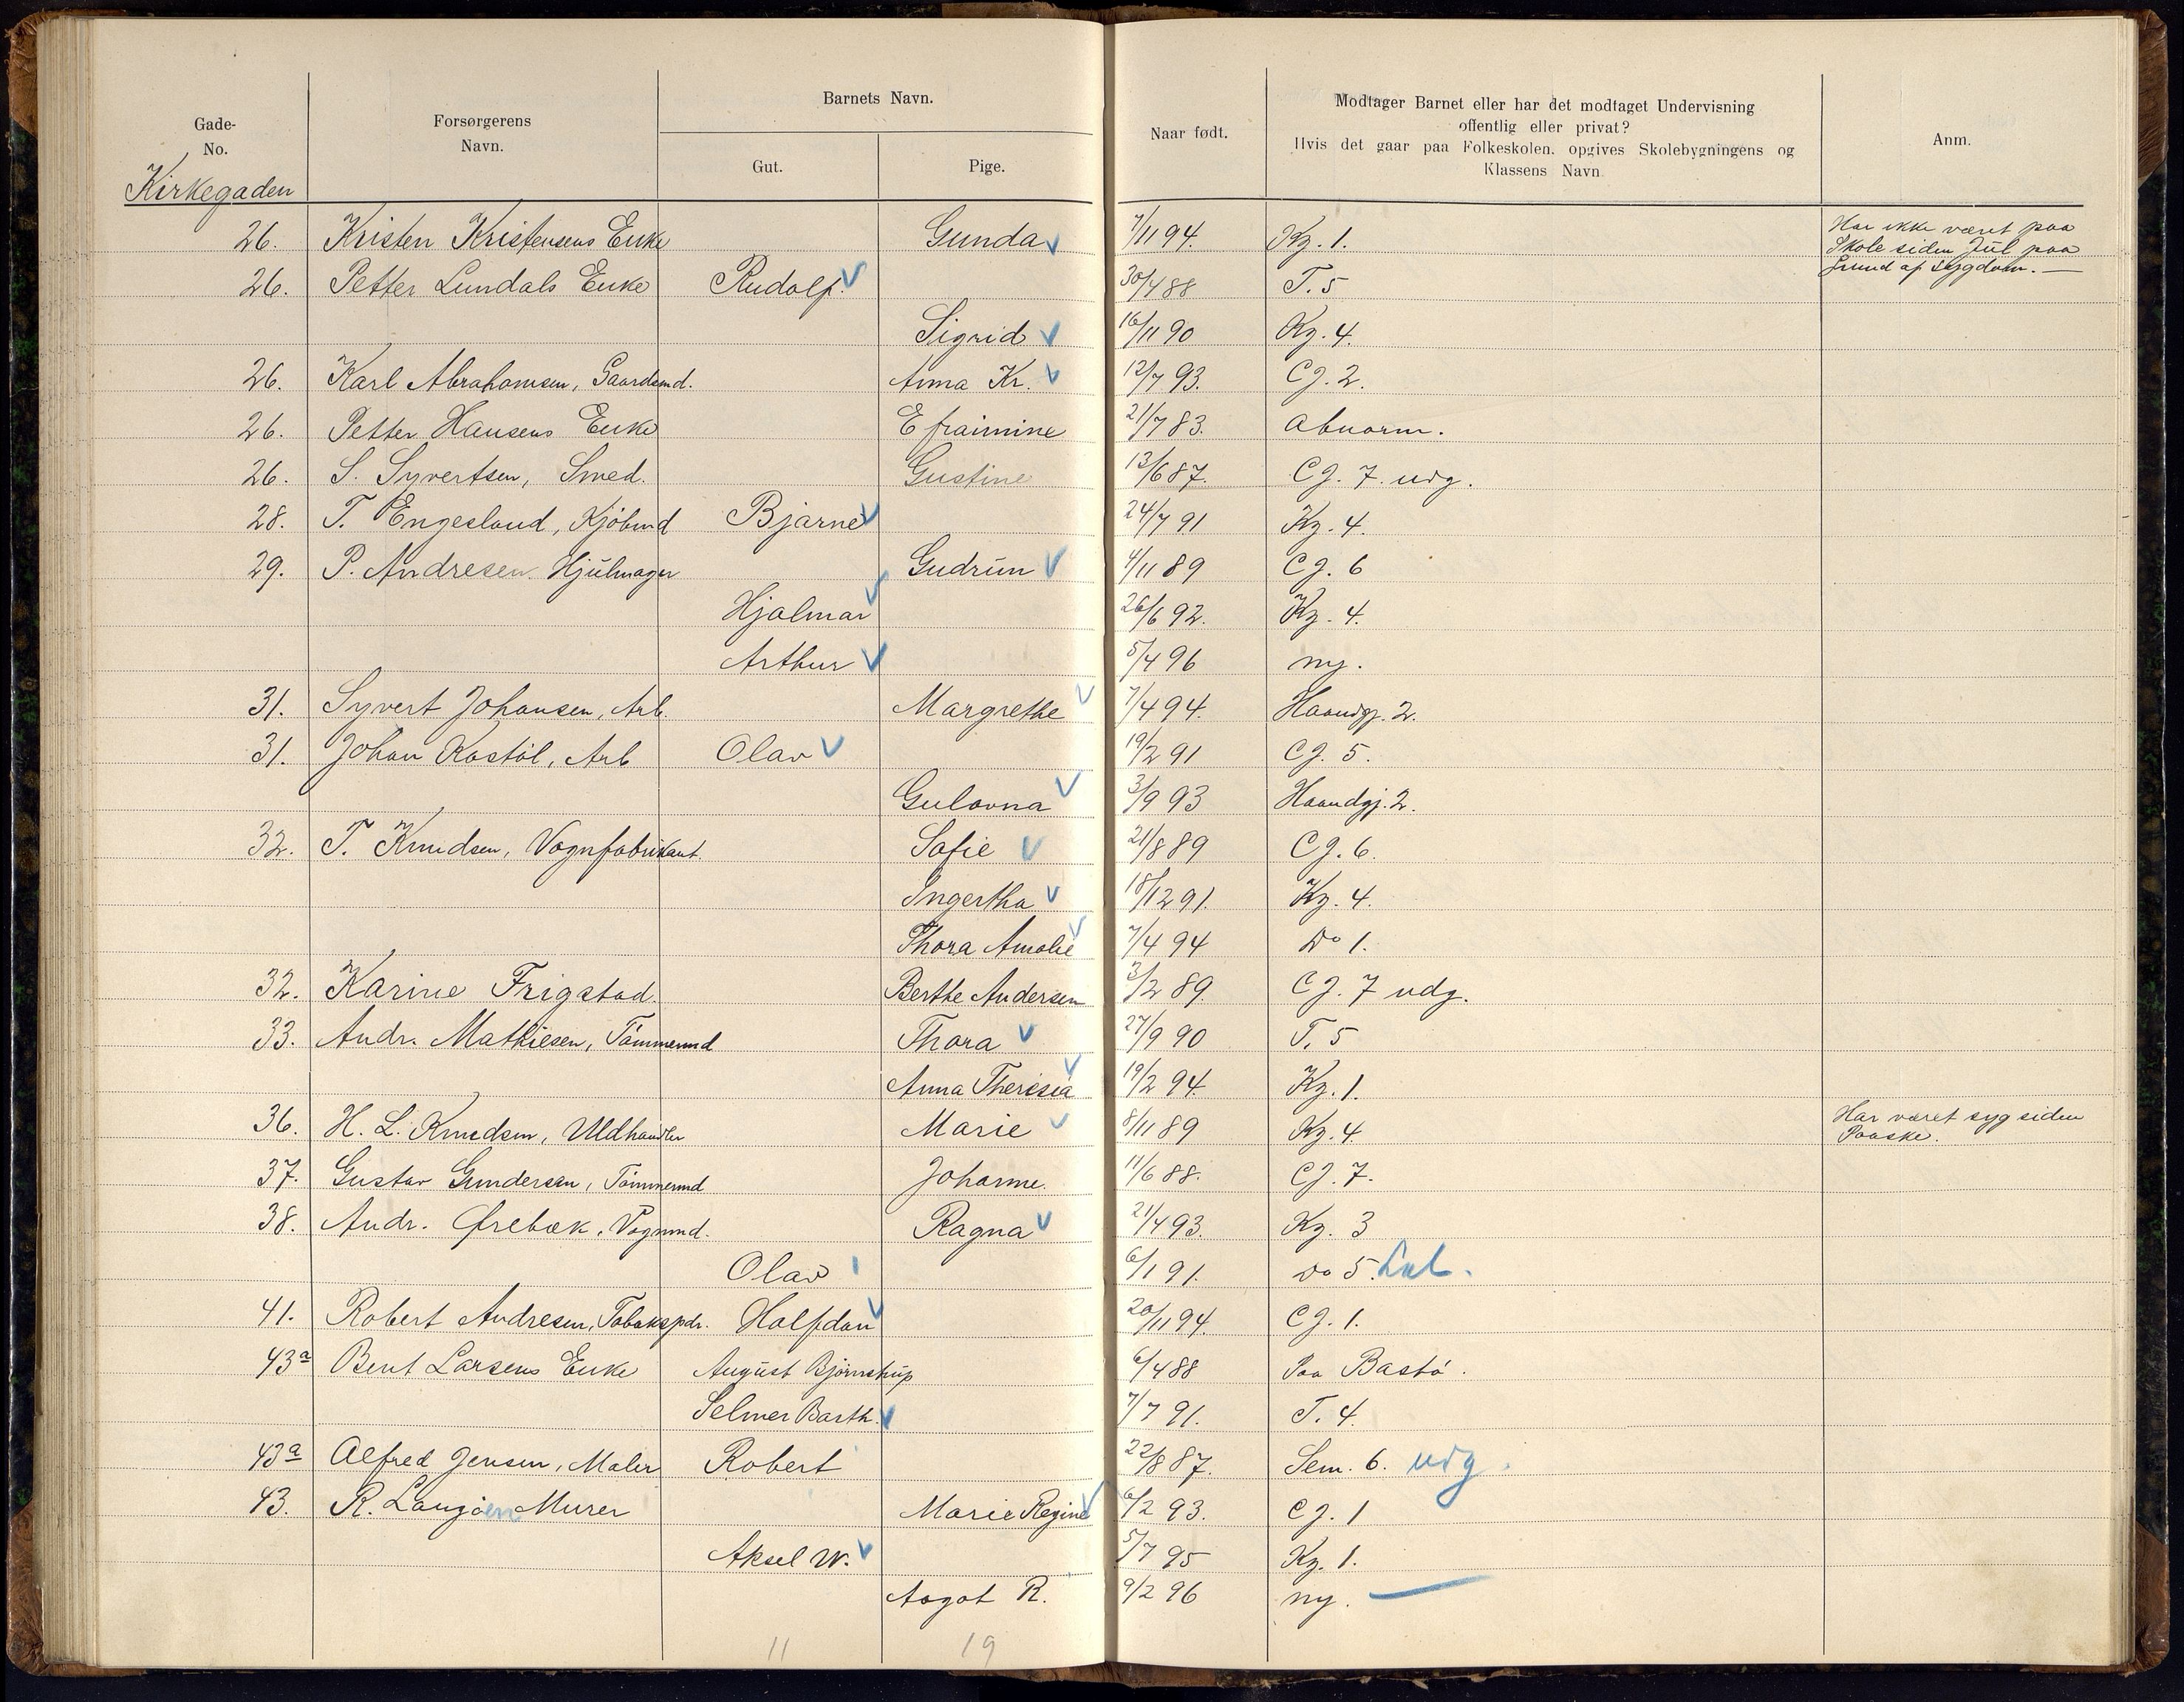 Gade-
No.
Forsørgerens
Navn.
Barnets Navn.
Gut.
Pige.
Naar født.
Modtager Barnet eller har det modtaget Undervisning
offentlig eller privat?
Hvis det gaar paa Folkeskolen, opgives Skolebygningens og
Klassens Navn
Anm.
Kirkegaden
26. Kristen Kristensens Enke Gunda 7/11 94. Kg. 1. Har ikke været paa
Skole siden Jul paa
Grund af Sygdom. —
26. Petter Lundals Enke Rudolf. 30/4 88 T. 5
Sigrid 16/11 90 Kg. 4.
26. Karl Abrahamsen, Gaardsmd. Anna Kr. 12/7 93. Cg. 2.
26. Petter Hansens Enke Efraimine 21/7 83. Abnorm.
26. S. Syvertsen, Smed. Gustine 13/6 87. Cg. 7. udg.
28. T. Engesland, Kjöbmd Bjarne 24/7 91 Kg. 4.
29. P. Andresen. Hjulmager Gudrun 4/11 89 Cg. 6
Hjalmar 26/6 92. Kg. 4.
Arthur 5/4 96 ny.
31. Syvert Johansen, Arb. Margrethe 7/4 94. Haandgj. 2.
31. Johan Kostöl, Arb Olav 19/2 91 Cg. 5.
Gulovna 3/9 93 Haandgj. 2.
32. T. Knudsen, Vognfabrikant. Sofie 21/8 89 Cg. 6.
Ingertha 18/12 91. Kg. 4.
Thora Amalie 7/4 94 Do 1.
32. Karine Frigstad. Berthe Andersen 3/2 89. Cg. 7 udg.
33. Andr. Mathiesen, Tömmermd Thora 27/9 90 T. 5
Anna Theresia 19/2 94. Kg. 1.
36. H. L. Knudsen, Uldhandler Marie 8/11 89 Kg. 4. Har været syg siden
Paaske.
37. Gustav Gundersen, Tömmermd Johanne. 11/6 88. Cg. 7.
38. Andr. Ørebæk, Vognmd. Ragna 21/4 93. Kg. 3
Olav 6/1 91. do 5.
41. Robert Andresen, Tobakspdr. Halfdan 20/11 94. Cg. 1.
43a Bent Larsens Enke August Björnstrup 6/4 88 Paa Bastö.
Selmer Barth. 7/7 91. T. 4.
43a Alfred Jensen, Maler Robert 22/8 87. Sem. 6. udg.
43. R. Langöen Murer Marie Regine 6/2 93. Cg. 1
Aksel W. 5/7 95 Kg. 1.
Aagot R. 9/2 96 ny.
11 19